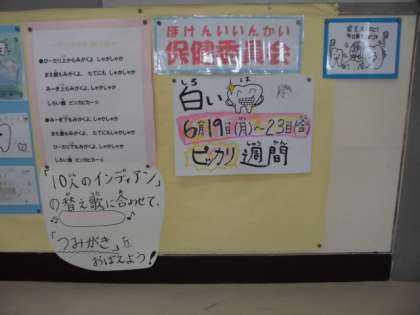 ほけんいいんかい
保健委員会
しろ は
白い
6月19日(月)～23日(金)
ピッカリ週間
●ひーだり上からみがくよ しゃかしゃか
まえ歯もみがくよ たてにも しゃかしゃか
みーぎ上もみがくよ しゃかしゃか
しろい歯 ピッカピカ
●みーぎ下もみがくよ しゃかしゃか
まえ歯もみがくよ たてにもしゃかしゃか
ひーだり下もみがくよ しゃかしゃか
しろい歯 ピッカピカ
「10人のインディアン」
の替え歌に合わせて、
「つみがき」を
おぼえよう!